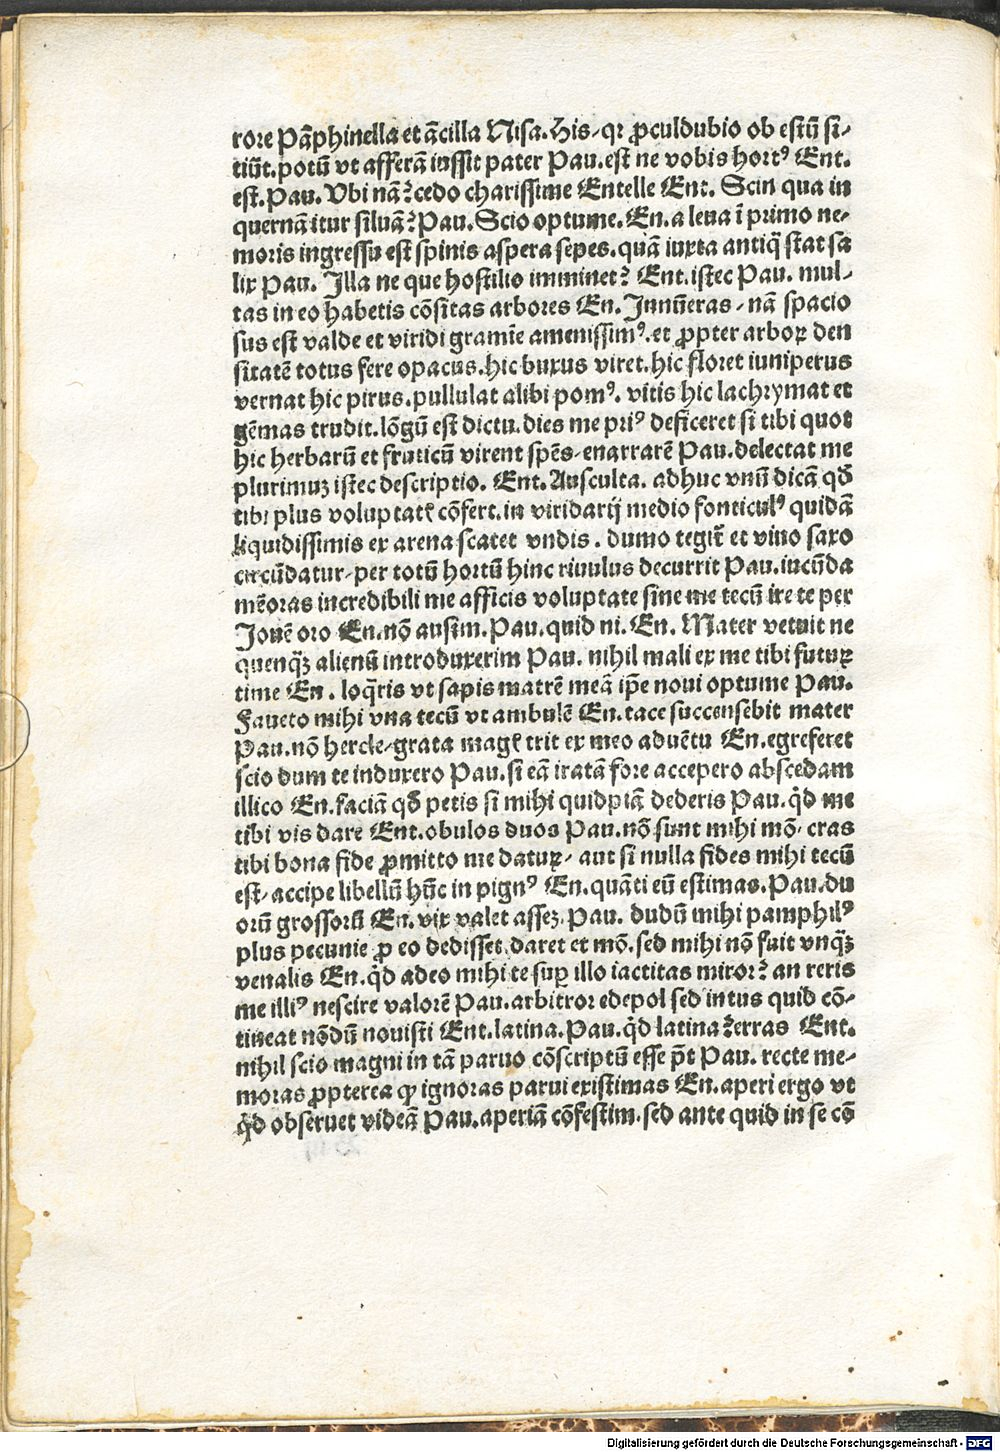 rore Pāphinella et ācilla Nisa. His, qr ꝓculdubio ob estū si-
tiūt. potū vt afferā iussit pater Pau. est ne vobis hortꝰ Ent.
est. Pau. Vbi nā? cedo charissime Entelle Ent. Scin qua in
quernā itur siluā? Pau. Scio optume. En. a leua ī primo ne-
moris ingressu est spinis aspera sepes. quā iuxta antiq̄ stat sa
lix Pau. Illa ne que hostilio imminet? Ent. istec Pau. mul-
tas in eo habetis cōsitas arbores En. Innūeras, nā spacio
sus est valde et viridi gramīe amenissimꝰ. et ꝓpter arboꝝ den
sitatē totus fere opacus. hic buxus viret. hic floret iuniperus
vernat hic pirus. pullulat alibi pomꝰ. vitis hic lachrymat et
gēmas trudit. lōgū est dictu. dies me priꝰ deficeret si tibi quot
hic herbarū et fruticū virent spēs, enarrarē Pau. delectat me
plurimuꝫ istec descriptio. Ent. Ausculta. adhuc vnū dicā qđ
tibi plus voluptatꝭ cōfert. in viridarij medio fonticulꝰ quidā
liquidissimis ex arena scatet vndis. dumo tegit᷑ et viuo saxo
circūdatur, per totū hortū hinc riuulus decurrit Pau. iucūda
mēoras incredibili me afficis voluptate sine me tecū ire te per
Jouē oro En. nō ausim. Pau. quid ni. En. Mater vetuit ne
quenq̄ꝫ alienū introduxerim Pau. nihil mali ex me tibi futuꝝ
time En. loq̄ris vt sapis matrē meā ip̄e noui optume Pau.
Faueto mihi vna tecū vt ambulē En. tace succensebit mater
Pau. nō hercle, grata magꝭ erit ex meo aduētu En. egreferet
scio dum te induxero Pau. si eā iratā fore accepero abscedam
illico En. faciā qđ petis si mihi quidpiā dederis Pau. q̇d me
tibi vis dare Ent. obulos duos Pau. nō sunt mihi mō, cras
tibi bona fide ꝓmitto me datuꝝ, aut si nulla fides mihi tecū
est, accipe libellū hūc in pignꝰ En. quāti eū estimas. Pau. du
orū grossorū En. vix valet assez. Pau. dudū mihi pamphilꝰ
plus pecunie ꝓ eo dedisset. daret et mō. sed mihi nō fuit vnq̄ꝫ
venalis En. q̇d adeo mihi te suꝑ illo iactitas miror? an reris
me illiꝰ nescire valorē Pau. arbitror edepol sed intus quid cō-
tineat nōdū nouisti Ent. latina. Pau. q̇d latina? erras Ent.
nihil scio magni in tā paruo cōscriptū esse p̄t Pau. recte me-
moras ꝓpterea ꝙ ignoras parui existimas En. aperi ergo vt
q̇d obseruet videā Pau. aperiā cōfestim. sed ante quid in se cō
Digitalisierung gefördert durch die Deutsche Forschungsgemeinschaft - DFG